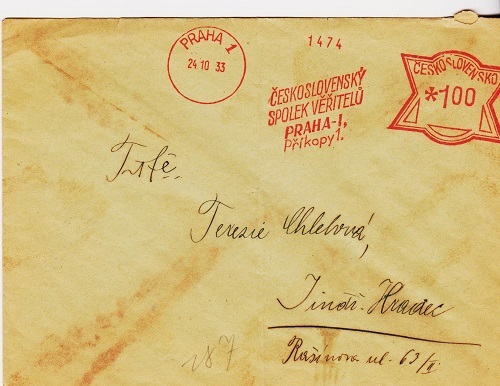 PRAHA 1
24 10 33
1474
ČESKOSLOVENSKÝ
SPOLEK VĚŘITELŮ
PRAHA-I,
Příkopy 1.
ČESKOSLOVENSKO
*100
Terezie Chlebová,
Jindř. Hradec
Rašínova ul. 63/II
187